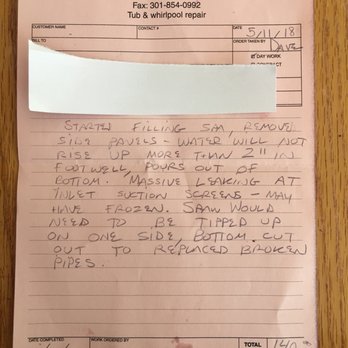 Fax: 301-854-0992
Tub & whirlpool repair
CUSTOMER NAME CONTACT # DATE 5/11/18
BILL TO ORDER TAKEN BY DAVE
DAY WORK
CONTRACT
STARTED FILLING SPA, REMOVED
SIDE PANELS - WATER WILL NOT
RISE UP MORE THAN 2" IN
FOOTWELL, POURS OUT OF
BOTTOM. MASSIVE LEAKING AT
INLET SUCTION SCREENS - MAY
HAVE FROZEN. SPA WOULD
NEED TO BE TIPPED UP
ON ONE SIDE, BOTTOM CUT
OUT TO REPLACED BROKEN
PIPES.
DATE COMPLETED WORK ORDERED BY TOTAL